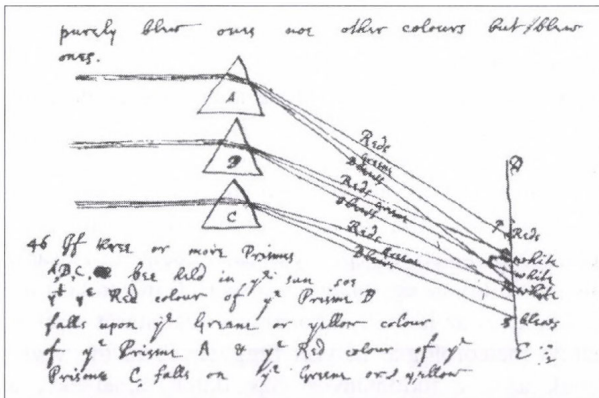 purely blew ones nor other colours but blew
ones.
A
Reds
Greene
Blews
B
Reds Greene
Blews
C
Reds
Greene
Blews
A
P
Reds
white
white
white
S blews
E
46 If three or more Prismes
A, B, C, bee held in ye sun soe
yt ye Red colour of ye Prisme B
falls upon ye Greene or yellow colour
of ye Prisme A & ye Red colour of ye
Prisme C falls on ye Greene or yellow